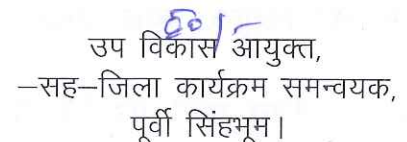 उप विकास आयुक्त,
–सह–जिला कार्यक्रम समन्वयक,
पूर्वी सिंहभूम।